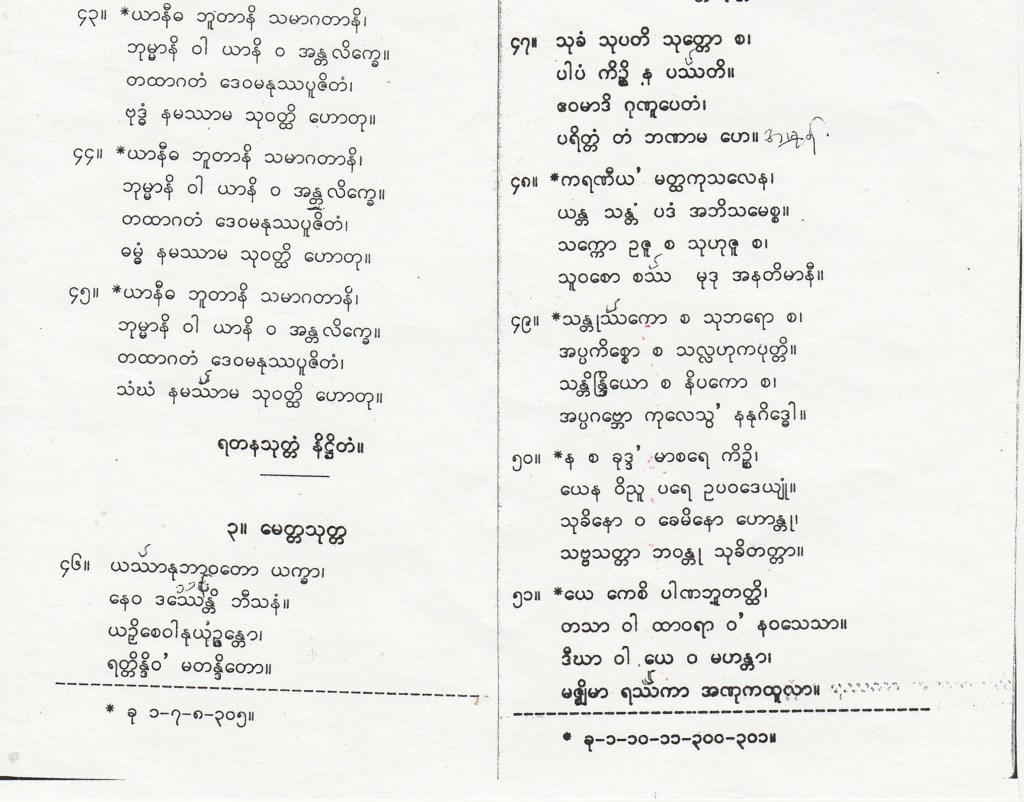 ၄၃။ *ယာနီဓ ဘူတာနိ သမာဂတာနိ၊
ဘုမ္မာနိ ဝါ ယာနိ ဝ အန္တလိက္ခေ။
တထာဂတံ ဒေဝမနုဿပူဇိတံ၊
ဗုဒ္ဓံ နမဿာမ သုဝတ္ထိ ဟောတု။
၄၄။ *ယာနီဓ ဘူတာနိ သမာဂတာနိ၊
ဘုမ္မာနိ ဝါ ယာနိ ဝ အန္တလိက္ခေ။
တထာဂတံ ဒေဝမနုဿပူဇိတံ၊
ဓမ္မံ နမဿာမ သုဝတ္ထိ ဟောတု။
၄၅။ *ယာနီဓ ဘူတာနိ သမာဂတာနိ၊
ဘုမ္မာနိ ဝါ ယာနိ ဝ အန္တလိက္ခေ။
တထာဂတံ ဒေဝမနုဿပူဇိတံ၊
သံဃံ နမဿာမ သုဝတ္ထိ ဟောတု။
ရတနသုတ္တံ နိဋ္ဌိတံ။
၃။ မေတ္တသုတ္တ
၄၆။ ယဿာနုဘာဝတော ယက္ခာ၊
နေဝ ဒဿေန္တိ ဘီသနံ။
ယဉှိစေဝါနုယုဉ္ဇန္တော၊
ရတ္တိန္ဒိဝ’ မတန္ဒိတော။
* ခု ၁-၇-၈-၃၀၅။
၄၇။ သုခံ သုပတိ သုတ္တော စ၊
ပါပံ ကိဉ္စိ န ပဿတိ။
ဧဝမာဒိ ဂုဏူပေတံ၊
ပရိတ္တံ တံ ဘဏာမ ဟေ။
၄၈။ *ကရဏီယ’ မတ္ထကုသလေန၊
ယန္တ သန္တံ ပဒံ အဘိသမေစ္စ။
သက္ကော ဥဇူ စ သုဟုဇူ စ၊
သူဝစော စဿ မုဒု အနတိမာနီ။
၄၉။ *သန္တုဿကော စ သုဘရော စ၊
အပ္ပကိစ္စော စ သလ္လဟုကဝုတ္တိ။
သန္တိန္ဒြိယော စ နိပကော စ၊
အပ္ပဂဗ္ဘော ကုလေသွ’ နနုဂိဒ္ဓေါ။
၅၀။ *န စ ခုဒ္ဒ’ မာစရေ ကိဉ္စိ၊
ယေန ဝိညူ ပရေ ဥပဝဒေယျုံ။
သုခိနော ဝ ခေမိနော ဟောန္တု၊
သဗ္ဗသတ္တာ ဘဝန္တု သုခိတတ္တာ။
၅၁။ *ယေ ကေစိ ပါဏဘူတတ္ထိ၊
တသာ ဝါ ထာဝရာ ဝ’ နဝသေသာ။
ဒီဃာ ဝါ ယေ ဝ မဟန္တာ၊
မဇ္ဈိမာ ရဿကာ အဏုကထူလာ။
* ခု-၁-၁၀-၁၁-၃၀၀-၃၀၁။